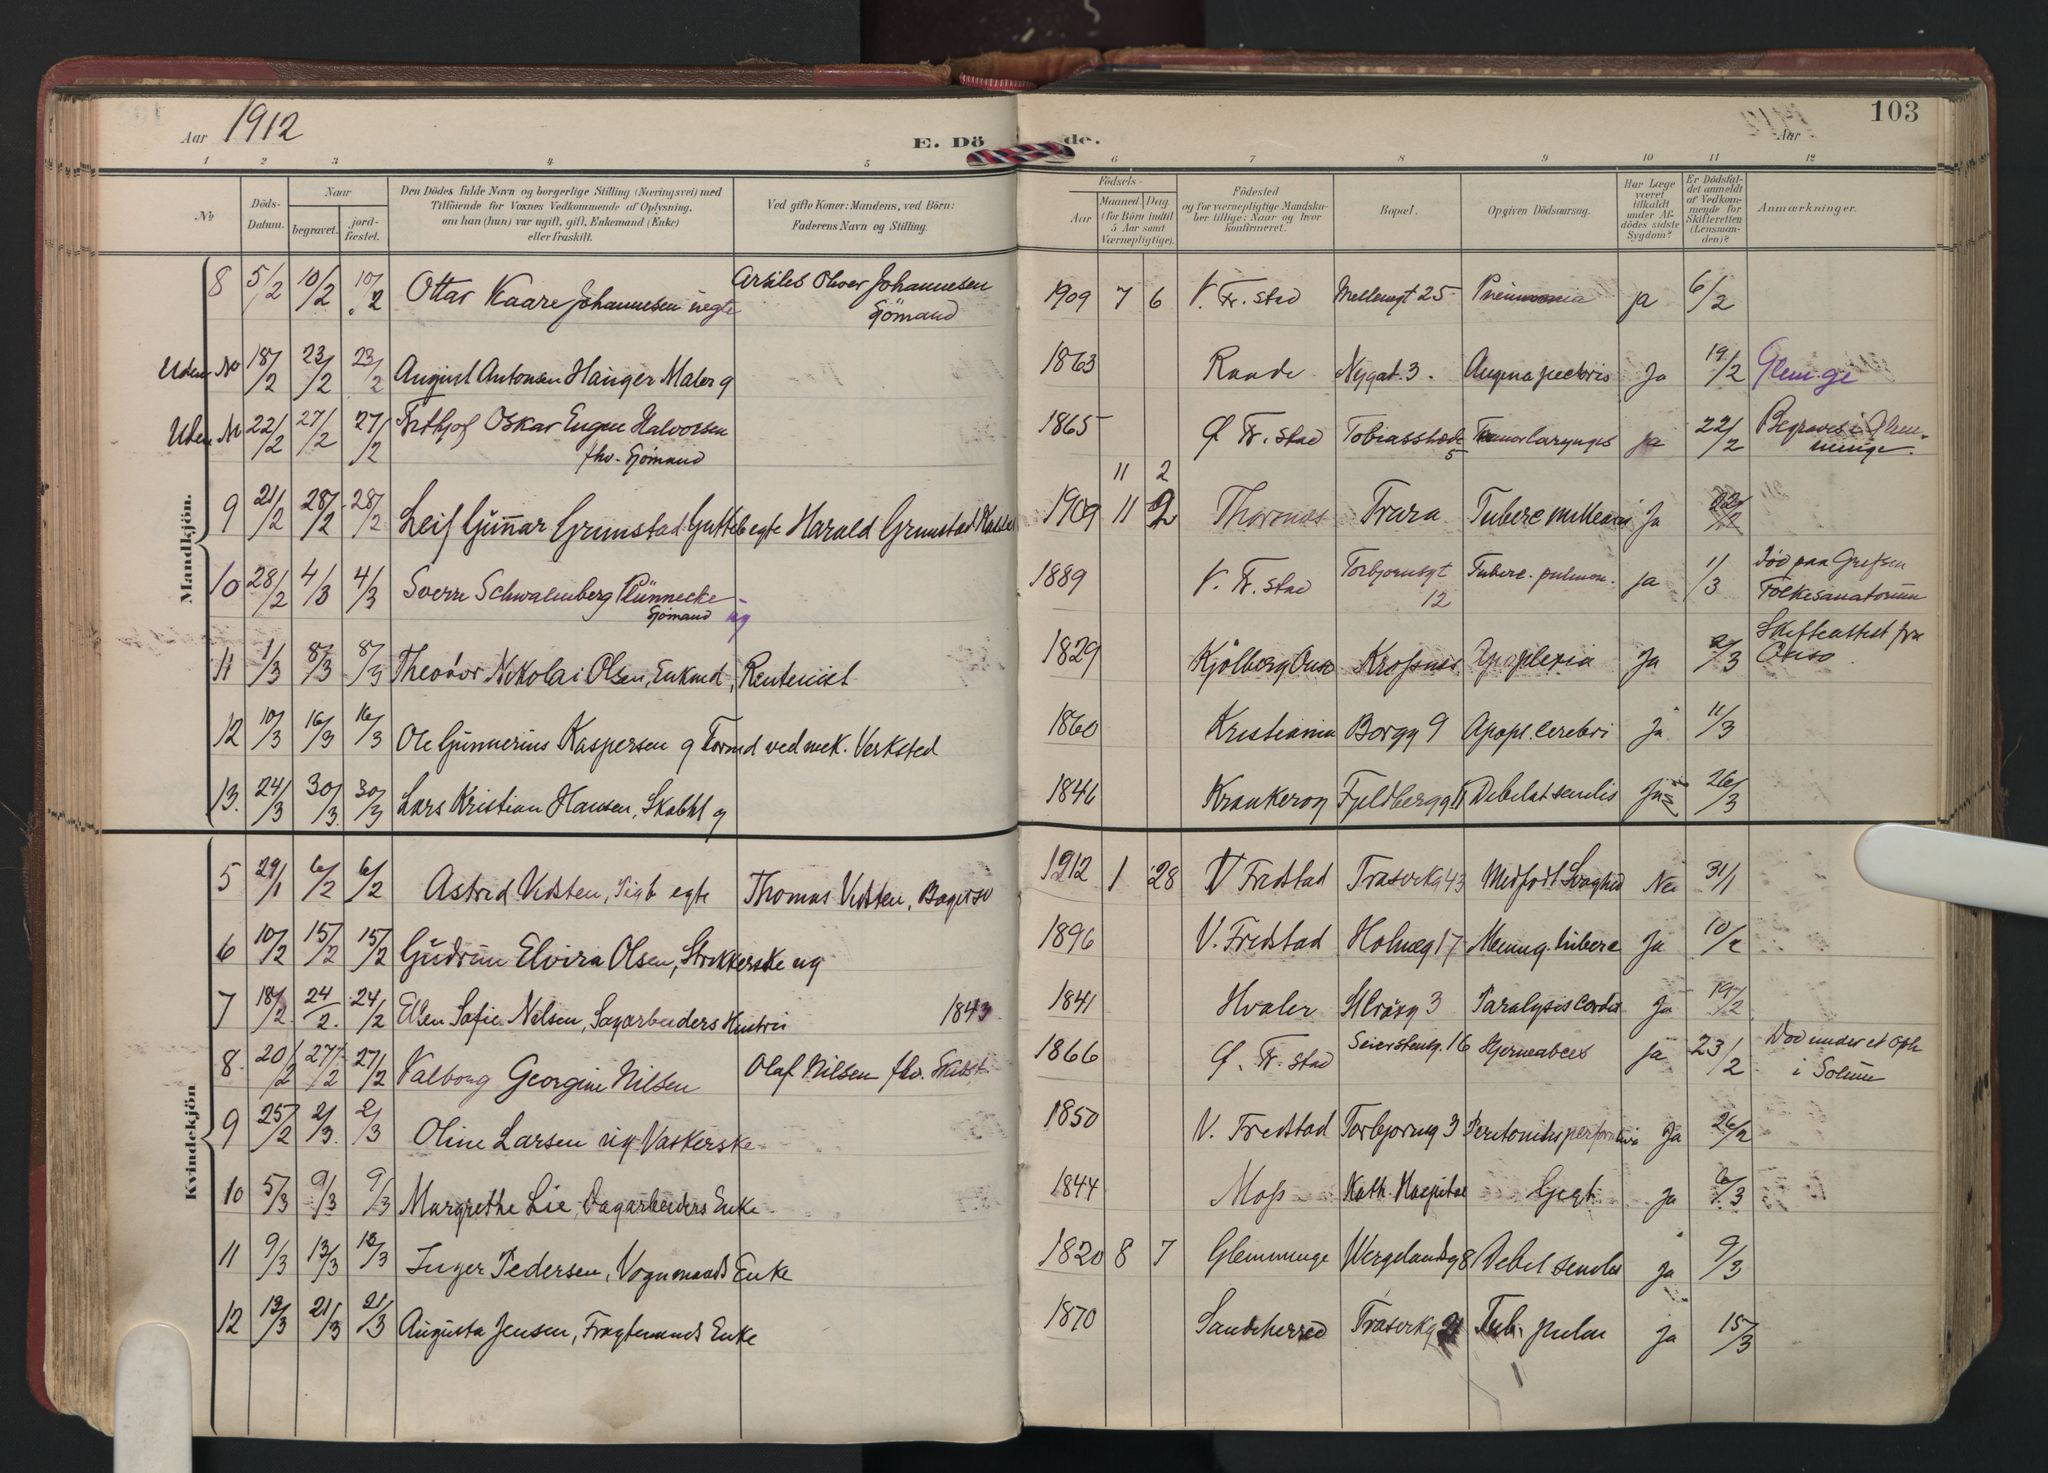 Aar 1912
E. Dö de.
Aar
103
1 2 3 4 5 6 7 8 9 10 11 12
No
Döds-
Datum.
Naar
begravet.
jord-
fæstet.
Den Dödes fulde Navn og borgerlige Stilling (Næringsvei) med
Tilföiende for Voxnes Vedkommende af Oplysning,
om han (hun) var ugift, gift, Enkemand (Enke)
eller fraskilt.
Ved gifte Koner: Mandens, ved Börn:
Faderens Navn og Stilling.
Födsels-
Aar
Maaned Dag
(for Börn indtil
5 Aar samt
Værnepligtige).
Födested
og for værnepligtige Mandska-
ber tillige: Naar og hvor
konfirmeret.
Bopæl.
Opgiven Dödsaarsag.
Har Læge
været
tilkaldt
under Af-
dødes sidste
Sygdom?
Er Dödsfal-
det anmeldt
af Vedkom-
mende for
Skifteretten
(Lensman-
den)?
Anmærkninger.
Mandkjön.
8 5/2 10/2 10/2 Ottar Kaare Johannesen ægte Oliver Johannesen Sjömand 1909 7 6 V. Fr.stad Mellemgt 25 Pneumonia ja 6/2
Uden No 18/2 23/2 23/2 August Antonsen Hauger Maler g 1863 Raade Nygat. 3. Angina pectoris Ja 19/2 Glem.ge
Uden N 22/2 27/2 27/2 Frithjof Oskar Eugen Halvorsen fhv. Sjömand 1865 Ø Fr.stad 5 ja 22/2 Begraves i Glem-
minge.
11 2
9 21/2 28/2 28/2 Leif Gunnar Grimstad Gutteb egte Harald Grimstad 1909 11 2 Trara Ja 22/2
10 28/2 4/3 4/3 Sverre Schwalenberg Plünnecke Sjömand ug 1889 V. Fr.stad Torbjornsgt 12 Tuberc. pulmon. ja 1/3 Död paa Grefsen
Folkesanatorium
11 1/3 8/3 8/3 Theodor Nikolai Olsen, Enkmd, Rentenist 1829 Kjölberg Onsö Krosnes Apoplexia Ja 2/3 Skifteattest fra
Onsö
12 10/3 16/3 16/3 Ole Gunnerius Kaspersen g Formd ved mek. Verksted 1860 Kristiania Borgg 9 Apopl. cerebri Ja 11/3
13. 24/3 30/3. 30/3 Lars Kristian Hansen, Skobht g 1846 Krankerog Fjeldbergg 11 Debilat senilis Ja 26/3
Kvindekjön
5 29/1 6/2 6/2 Astrid Vidsten, Pigb egte Thomas Vidsten, Bagersv 1912 1 28 V Fredstad Trosvikg 43 Medfödt Svaghed Nei 31/1
6 10/2 15/2 15/2 Gudrun Elvira Olsen, Strikkerske ug 1896 V. Fredstad Holmeg 17 Mening. tuberc Ja 10/2
7 18/2. 24/2. 24/2 Ellen Sofie Nilsen, Sagarbeiders Hustru 1843 1841 Hvaler 3 Paralysis cordis Ja 19/2
8. 20/2 27/2 27/2 Valborg Georgine Nilsen Olaf Nilsen fhv. Skibst. 1866 Ø. Fr.stad Seierstensg. 16 Hjerneabces ja 23/2 Död under et oph
i Solum
9 25/2 2/3. 2/3 Oline Larsen ug Vaskerske 1850 V. Fredstad Torbjörnsg 3 Peritonitis perforativa Ja 26/2
10 5/3 9/3 9/3 Margrethe Lie, Dagarbeiders Enke 1844 Moss Kath. Hospital Gigt ja 6/3
11 9/3 13/3 13/3 Inger Pedersen, Vognmands Enke 1820 8 7 Glemminge Wergelandsg 8 Debil senilis ja 9/3
12 13/3 21/3 21/3 Augusta Jensen, Fragtemands Enke 1870 Sandeherred Trosvikg 21 Tub. pulm ja 15/3